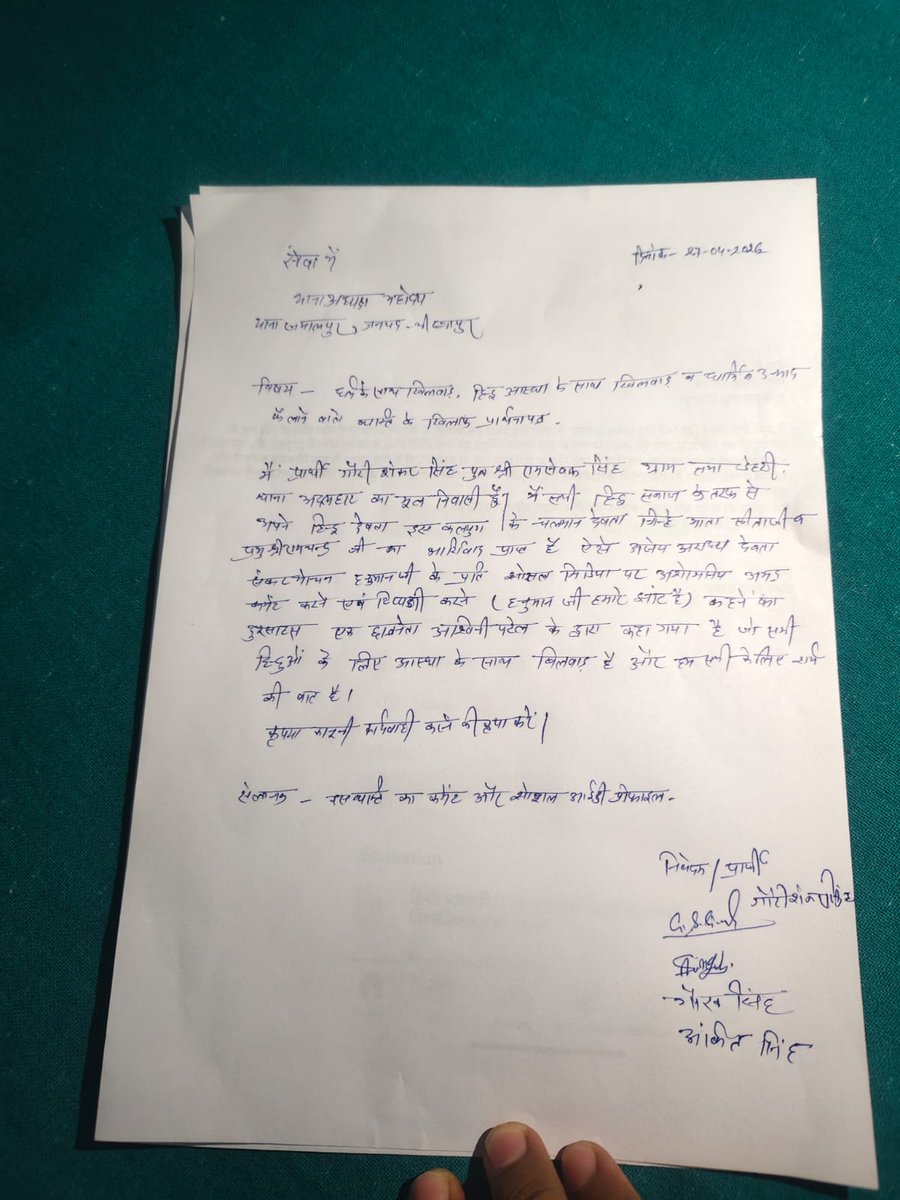 सेवा में
दिनांक- 27-04-2026
थाना अध्यक्ष महोदय
थाना जमालपुर, जनपद-मीरजापुर
विषय - धर्म के साथ खिलवाड़, हिन्दू आस्था के साथ खिलवाड़ व धार्मिक उन्माद
फैलाने वाले व्यक्ति के खिलाफ प्रार्थनापत्र.
मैं प्रार्थी गौरी शंकर सिंह पुत्र श्री रामसेवक सिंह ग्राम सभा
थाना अदलहाट का मूल निवासी हूँ। मैं सभी हिन्दू समाज के तरफ से
अपने हिन्दू देवता इस कलयुग के चलमान देवता जिन्हे माता सीताजी व
प्रभु श्रीरामचन्द्र जी का आर्शिवाद प्राप्त है ऐसे अजेय देवता
संकटमोचन हनुमान जी के प्रति शोसल मिडिया पर अशोभनिय अभद्र
कमेंट करने एवं टिप्पणी करने (हनुमान जी हमारे है) कहने का
दुस्साहस एक छात्रनेता अश्विनी पटेल के द्वारा कहा गया है जो सभी
हिन्दुओं के लिए आस्था के साथ खिलवाड़ है और हम सभी के लिए शर्म
की बात है।
कृपया कानूनी कार्यवाही करने की कृपा करें।
संलग्नक - इस व्यक्ति का कमेंट और शोशल आईडी प्रोफाइल.
निवेदक / प्रार्थी
गौरीशंकर सिंह
गौरव सिंह
अंकित सिंह